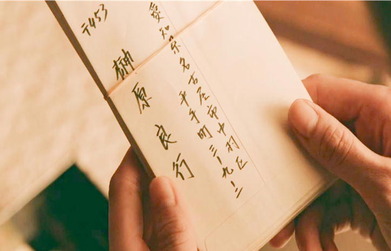 〒453
愛知県名古屋市中村区
三-九-二
榊原良行